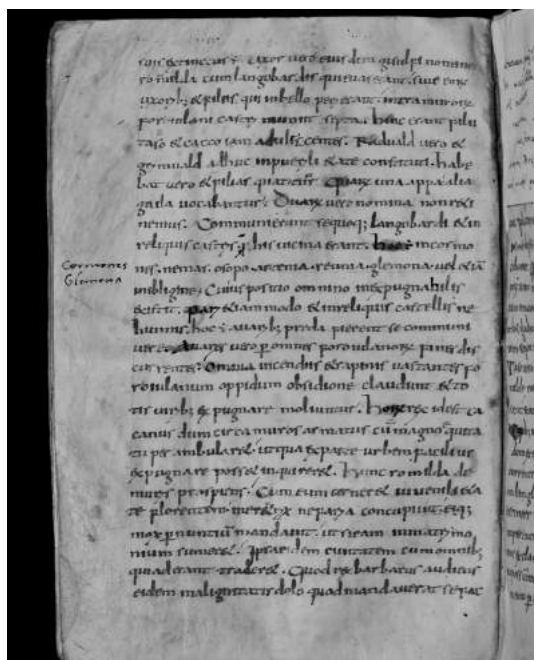 extinctus ÷ uxor vero eius dem gisulfi nomine
romilda cum langobardis qui evaserant sive
uxorib; et filiis qui in bello perierant intra muros
foroiulani castri munivit septa. hinc erant filii
taso et cacco iam adulescentes. Raduald vero et
grimuald adhuc in puerili etate constituti. habe
bat vero et filias quattuor. Quarum una appa alia
gaila vocabatur. Duarum vero nomina non reti
nemus. Communierant se quoq; langobardi et in
reliquis castris que his vicina erant. hoc in cormo
nis. nemas. osopo. artenia. reunia. glemona. vel etiā
in ibligine. Cuius positio omnino inexpugnabilis
existit. Pari etiam modo et in reliquis castellis ne
hunnis. hoc ÷ avarib; preda fierent se communi
vere. Avares vero p omnes foroiulanorum fines dis
currentes. Omnia incendiis et rapinis vastantes fo
roiulanum oppidum obsidione claudunt et to
tis virib; expugnare moliuntur. Horum rex id est ca
canus dum circa muros armatus cū magno equita
tu perambularet. ut qua ex parte urbem facilius
expugnare posset inquireret. Hunc romilda de
muris prospiciens. Cum eum cerneret iuvenili eta
te florentem meretrix nefaria concupivit. eiq;
mox p nuntiū mandavit. ut si eam in matrimo
nium sumeret. Ipsa eidem civitatem cum omnib;
qui aderant traderet. Quod rex barbarus audiens
eidem malignitatis dolo quod mandaverat se fac
Cormones
Glemona